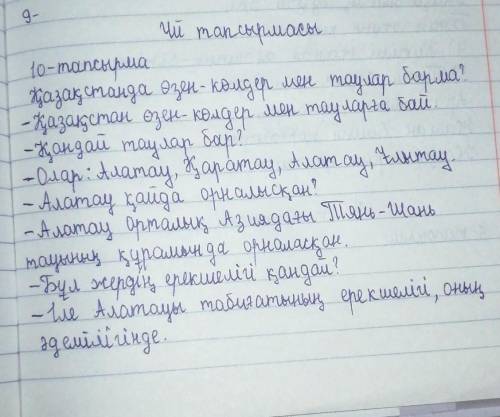 9-
Үй тапсырмасы
10-тапсырма
Қазақстанда өзен-көлдер мен таулар барма?
-Қазақстан өзен-көлдер мен тауларға бай.
-Қандай таулар бар?
-Олар: Алатау, Қаратау, Алатау, Ұлытау.
-Алатау қайда орналысқан?
-Алатау орталық Азиядағы Тянь-Шань
тауының құрамында орналасқан.
-Бұл жердің ерекшелігі қандай?
-Іле Алатауы табиғатының ерекшелігі, оның
әдемілігінде.